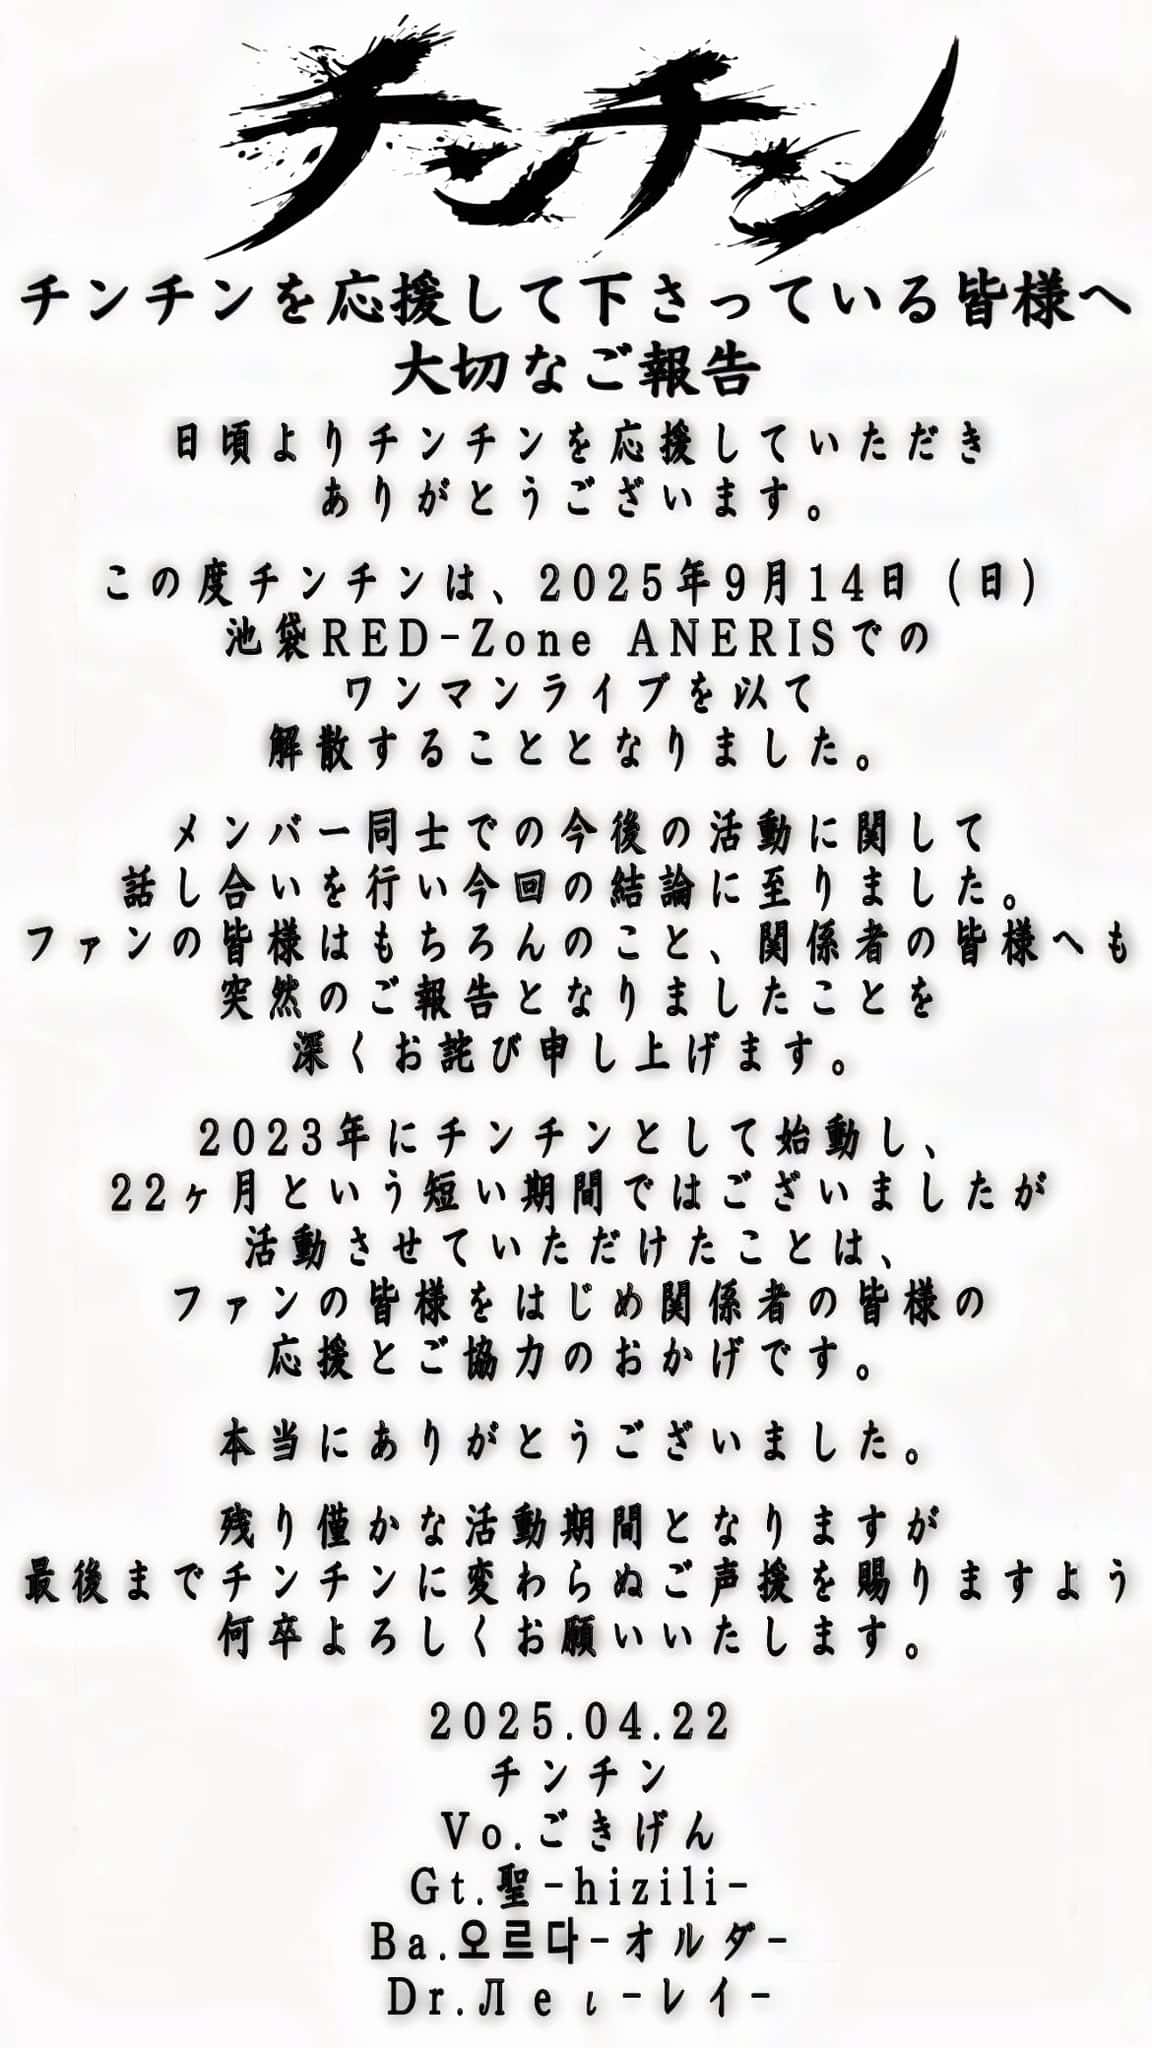 チンチン
チンチンを応援して下さっている皆様へ
大切なご報告
日頃よりチンチンを応援していただき
ありがとうございます。
この度チンチンは、2025年9月14日（日）
池袋RED-Zone ANERISでの
ワンマンライブを以て
解散することとなりました。
メンバー同士での今後の活動に関して
話し合いを行い今回の結論に至りました。
ファンの皆様はもちろんのこと、関係者の皆様へも
突然のご報告となりましたことを
深くお詫び申し上げます。
2023年にチンチンとして始動し、
22ヶ月という短い期間ではございましたが
活動させていただけたことは、
ファンの皆様をはじめ関係者の皆様の
応援とご協力のおかげです。
本当にありがとうございました。
残り僅かな活動期間となりますが
最後までチンチンに変わらぬご声援を賜りますよう
何卒よろしくお願いいたします。
2025.04.22
チンチン
Vo.ごきげん
Gt.聖-hizili-
Ba.오르다-オルダ-
Dr.Лeι-レイ-